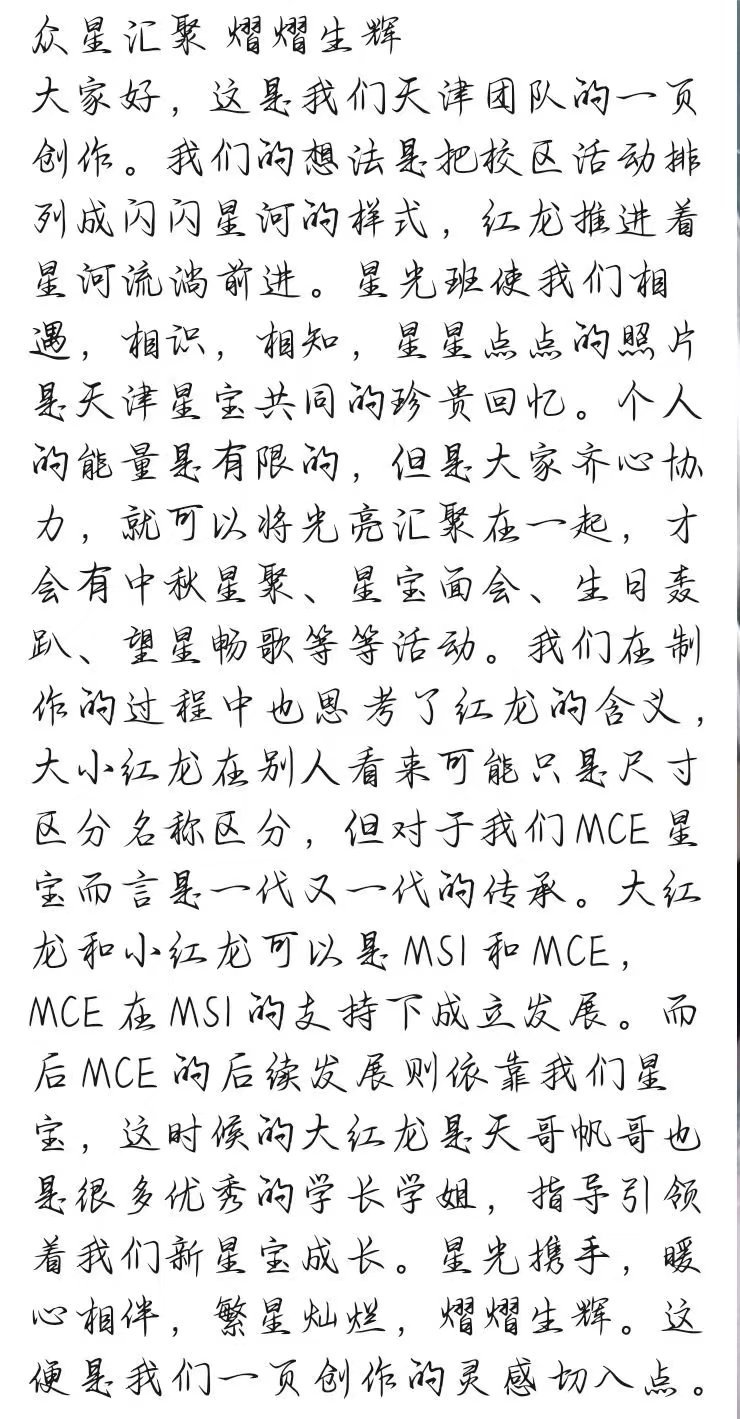 众星汇聚 熠熠生辉
大家好，这是我们天津团队的一页
创作。我们的想法是把校区活动排
列成闪闪星河的样式，红龙推进着
星河流淌前进。星光班使我们相
遇，相识，相知，星星点点的照片
是天津星宝共同的珍贵回忆。个人
的能量是有限的，但是大家齐心协
力，就可以将光亮汇聚在一起，才
会有中秋星聚、星宝面会、生日轰
趴、望星畅歌等等活动。我们在制
作的过程中也思考了红龙的含义，
大小红龙在别人看来可能只是尺寸
区分名称区分，但对于我们MCE星
宝而言是一代又一代的传承。大红
龙和小红龙可以是MSI和MCE，
MCE在MSI的支持下成立发展。而
后MCE的后续发展则依靠我们星
宝，这时候的大红龙是天哥帆哥也
是很多优秀的学长学姐，指导引领
着我们新星宝成长。星光携手，暖
心相伴，繁星灿烂，熠熠生辉。这
便是我们一页创作的灵感切入点。